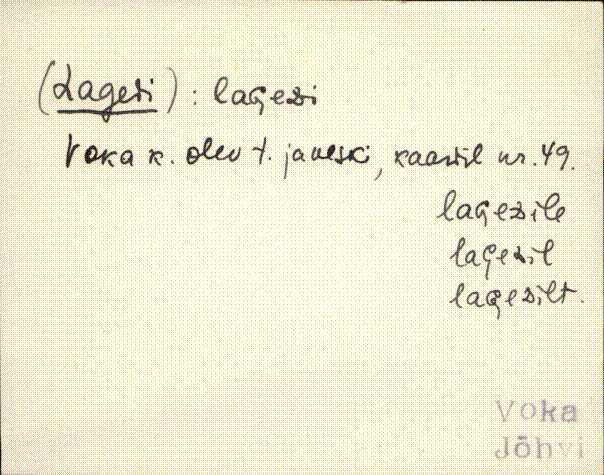 (Lagesi) : lagesi
Voka k. olev t. janeski, kaardil nr. 49.
lagesile
lagesil
lagesilt.
Voka
Jõhvi